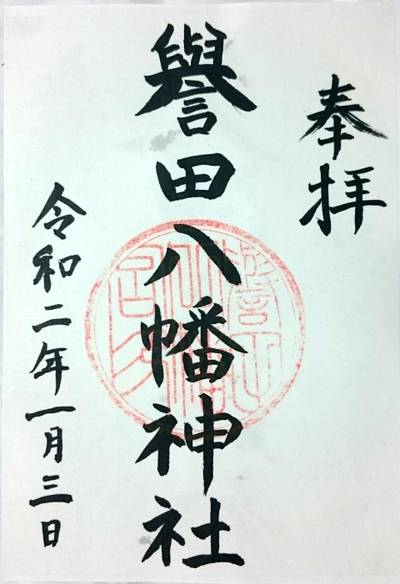 奉拝
譽田八幡神社
令和二年一月三日